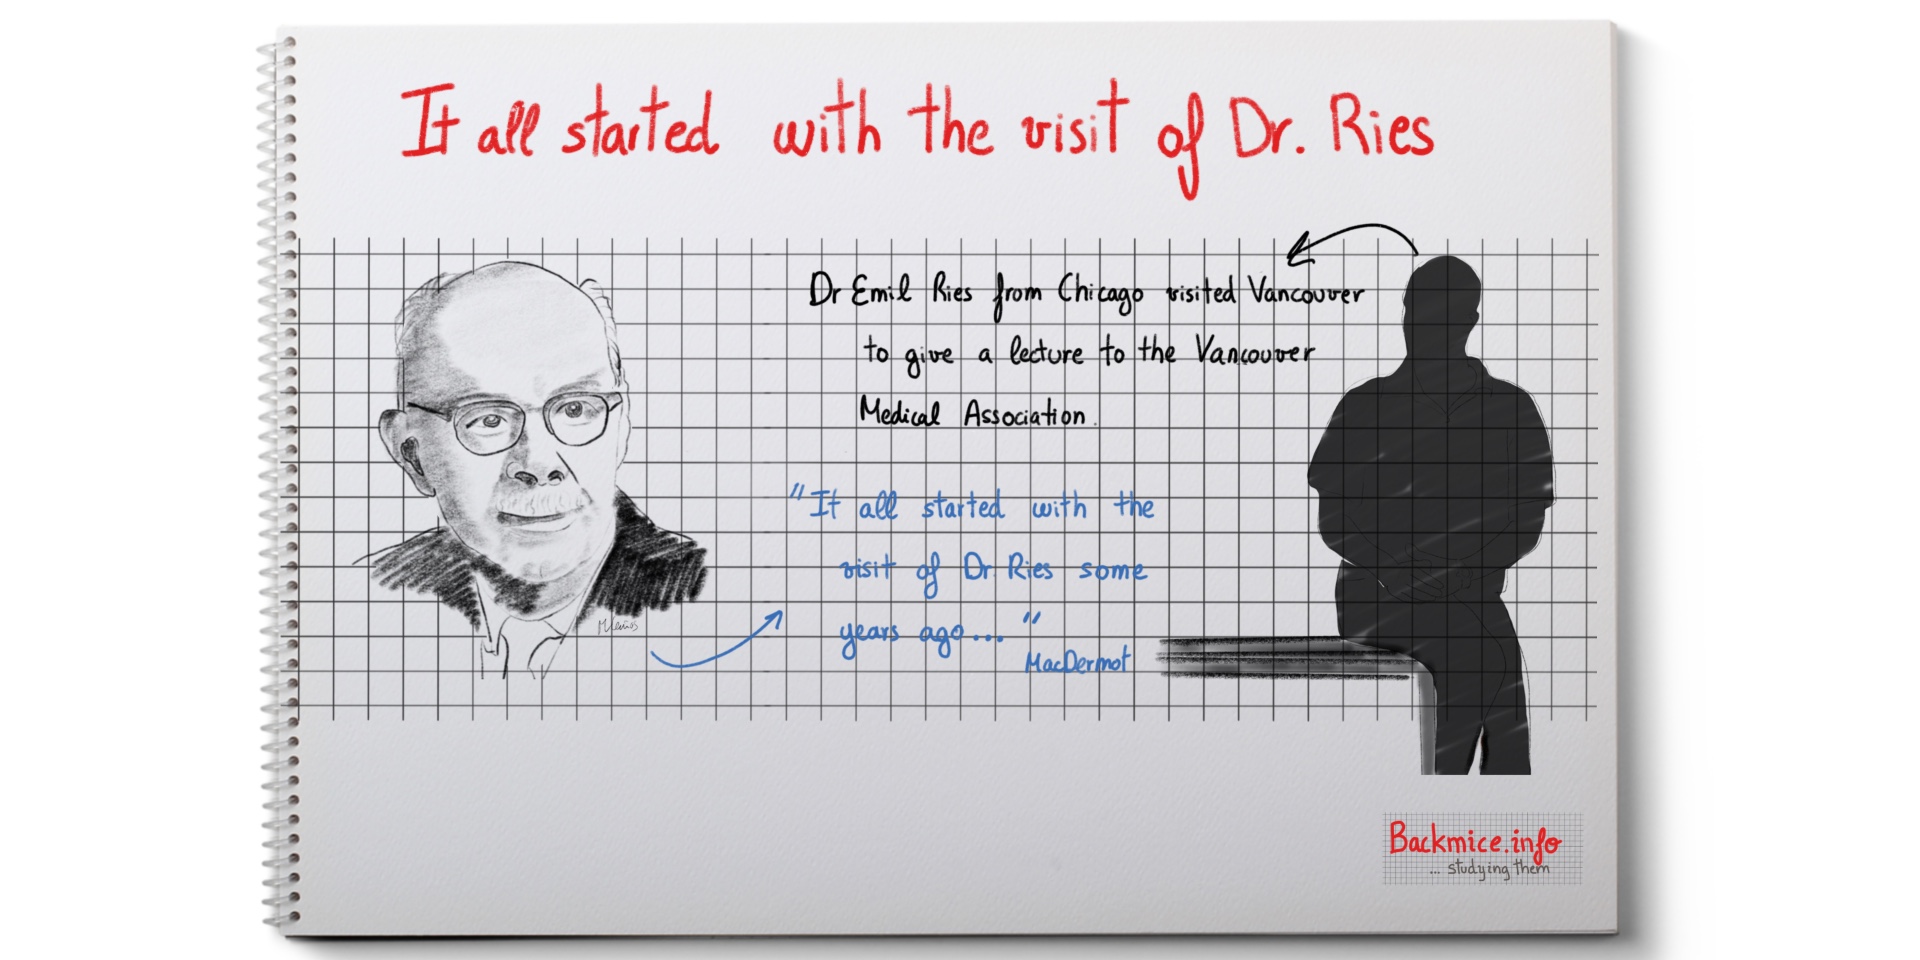 It all started with the visit of Dr. Ries
Dr Emil Ries from Chicago visited Vancouver
to give a lecture to the Vancouver
Medical Association.
"It all started with the
visit of Dr Ries some
years ago... "
MacDermot
Backmice.info
... studying them